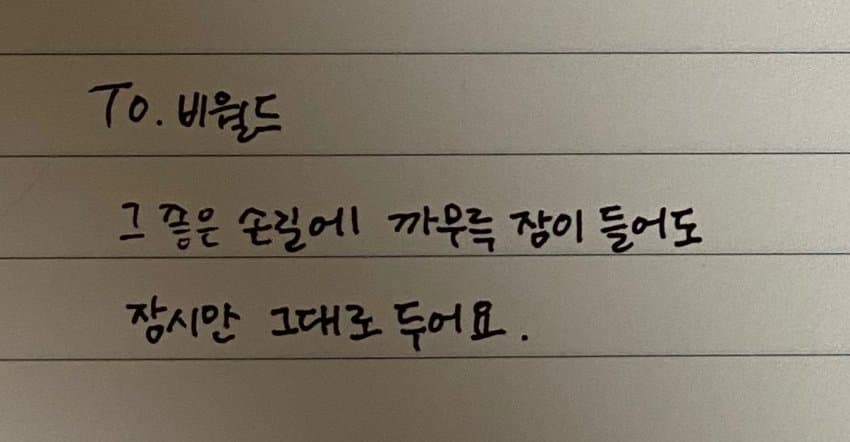 To. 비월드
그 좁은 손길에 까무룩 잠이 들어도
잠시만 그대로 두어요.